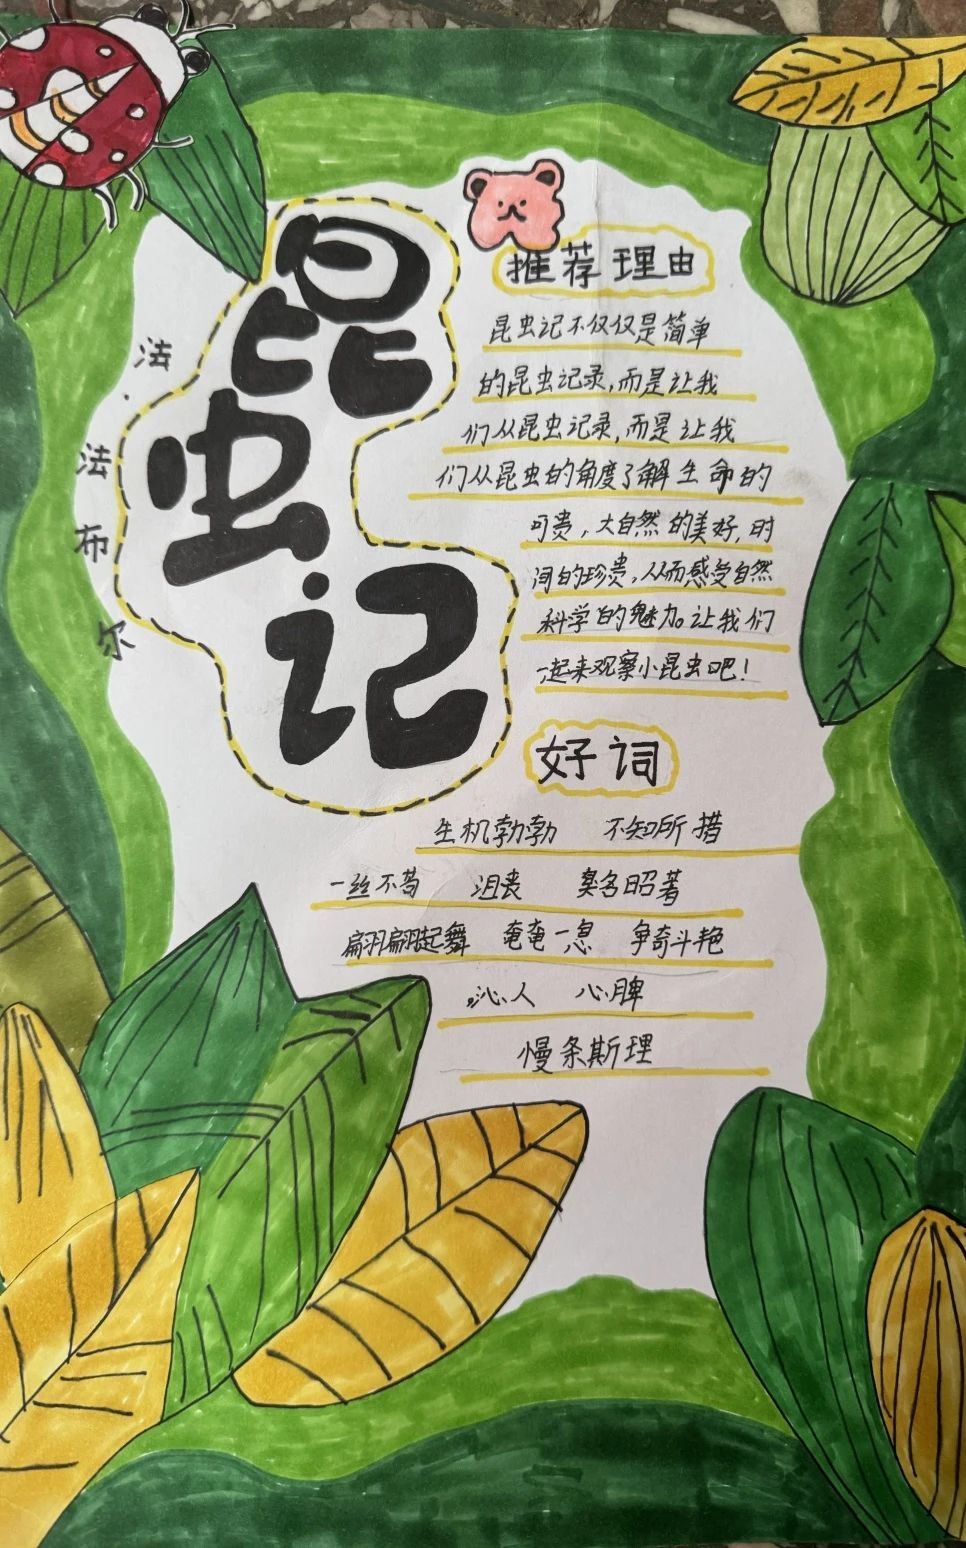 昆
虫
记
法
·
法
布
尔
推荐理由
昆虫记不仅仅是简单
的昆虫记录,而是让我
们从昆虫记录,而是让我
们从昆虫的角度了解生命的
可贵,大自然的美好,时
间的珍贵,从而感受自然
科学的魅力。让我们
一起来观察小昆虫吧!
好词
生机勃勃 不知所措
一丝不苟 沮丧 臭名昭著
翩翩起舞 奄奄一息 争奇斗艳
沁人 心脾
慢条斯理